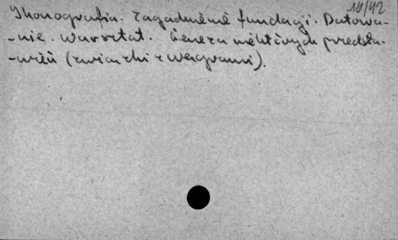 16/42
Ikonografia. Zagadnienie fundacji. Datowa-
-nie. Warsztat. Geneza niektórych przedsta-
-wień (związki z Węgrami).